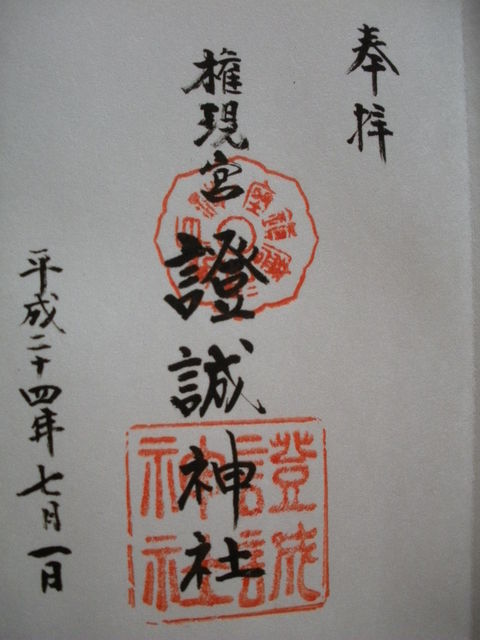 奉拝
権現宮
證誠神社
平成二十四年七月一日
證誠神社